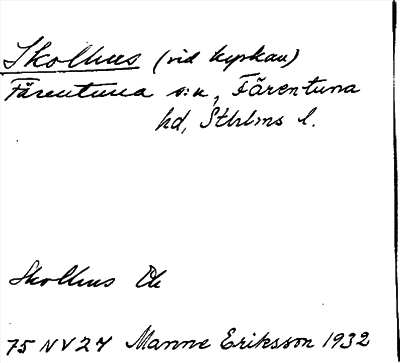 Skolhus (vid kyrkan)
Färentuna s:n, Färentuna
hd, Sthlms l.
Skolhus Ek
75 NV27 Manne Eriksson 1932